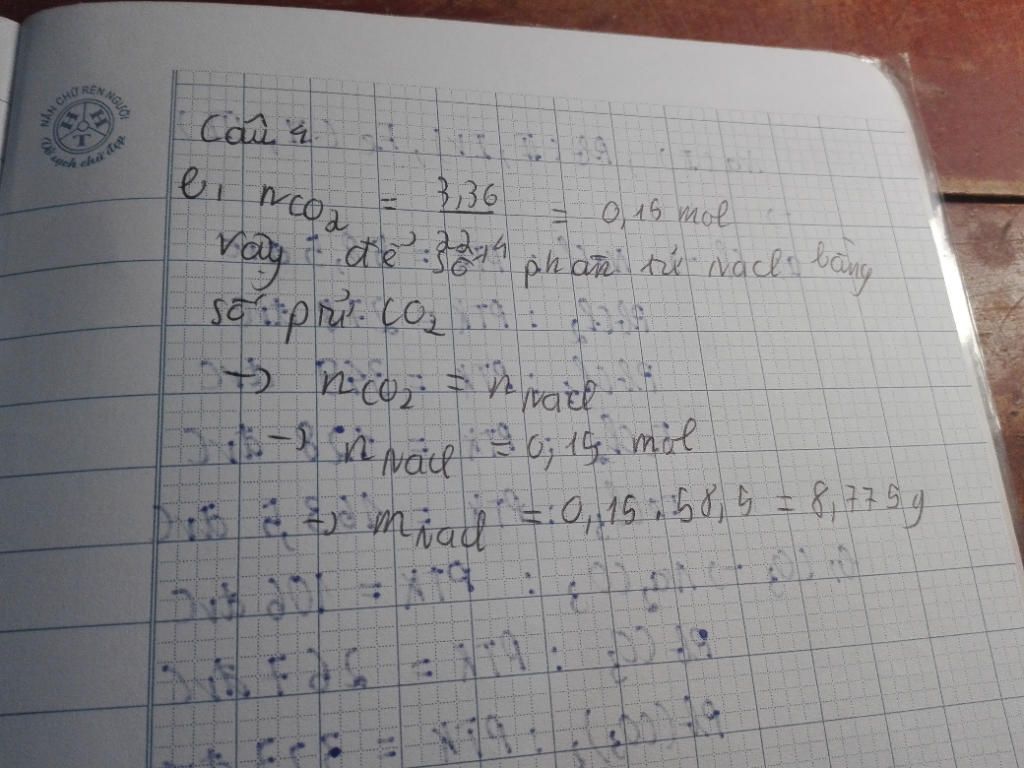 NẮN CHỮ RÈN NGƯỜI
H H T
Vở sạch chữ đẹp
Câu 4.
b, nCO2 = 3,36 / 22,4 = 0,15 mol
Vậy để số phân tử NaCl bằng
số ptử CO2
→ nCO2 = nNaCl
→ nNaCl = 0,15 mol
→ mNaCl = 0,15 . 58,5 = 8,775g